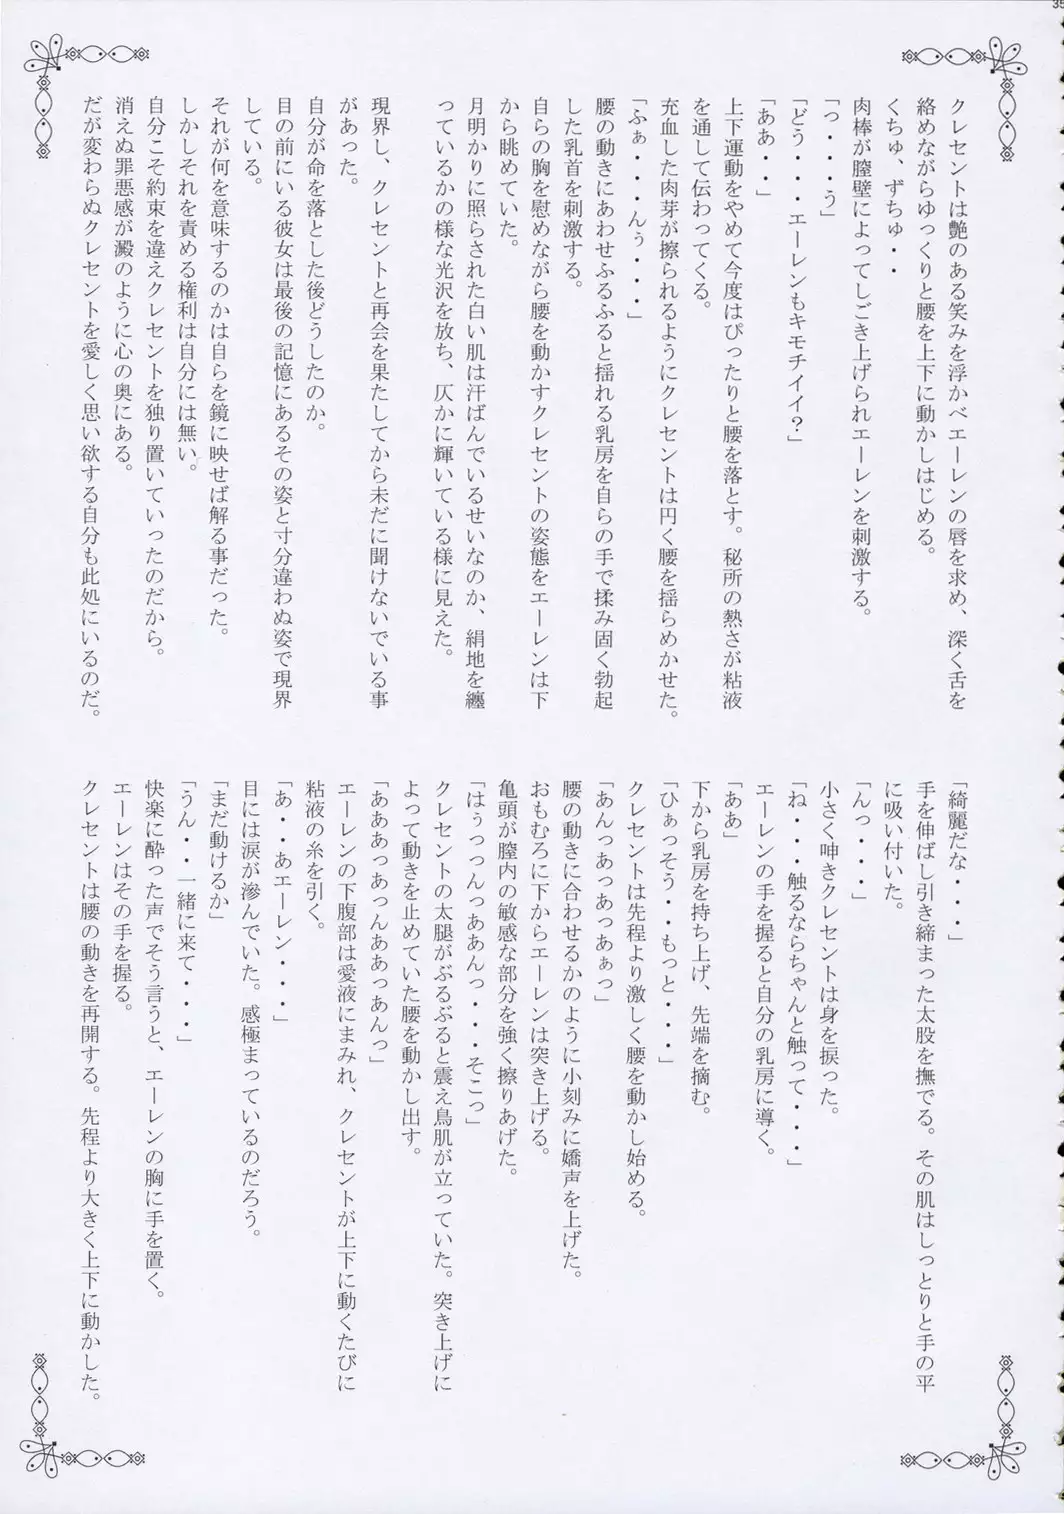 35
クレセントは艶のある笑みを浮かべエーレンの唇を求め、深く舌を
絡めながらゆっくりと腰を上下に動かしはじめる。
くちゅ、ずちゅ・・
肉棒が膣壁によってしごき上げられエーレンを刺激する。
「っ・・・う」
「どう・・・エーレンもキモチイイ?」
「ああ・・」
上下運動をやめて今度はぴったりと腰を落とす。秘所の熱さが粘液
を通して伝わってくる。
充血した肉芽が擦られるようにクレセントは円く腰を揺らめかせた。
「ふぁ・・・んぅ・・・」
腰の動きにあわせふるふると揺れる乳房を自らの手で揉み固く勃起
した乳首を刺激する。
自らの胸を慰めながら腰を動かすクレセントの姿態をエーレンは下
から眺めていた。
月明かりに照らされた白い肌は汗ばんでいるせいなのか、絹地を纏
っているかの様な光沢を放ち、仄かに輝いている様に見えた。
現界し、クレセントと再会を果たしてから未だに聞けないでいる事
があった。
自分が命を落とした後どうしたのか。
目の前にいる彼女は最後の記憶にあるその姿と寸分違わぬ姿で現界
している。
それが何を意味するのかは自らを鏡に映せば解る事だった。
しかしそれを責める権利は自分には無い。
自分こそ約束を違えクレセントを独り置いていったのだから。
消えぬ罪悪感が澱のように心の奥にある。
だが変わらぬクレセントを愛しく思い欲する自分も此処にいるのだ。
「綺麗だな・・・」
手を伸ばし引き締まった太股を撫でる。その肌はしっとりと手の平
に吸い付いた。
「んっ・・・」
小さく呻きクレセントは身を捩った。
「ね・・・触るならちゃんと触って・・・」
エーレンの手を握ると自分の乳房に導く。
「ああ」
下から乳房を持ち上げ、先端を摘む。
「ひぁっそう・・もっと・・・」
クレセントは先程より激しく腰を動かし始める。
「あんっあっあっあぁっ」
腰の動きに合わせるかのように小刻みに嬌声を上げた。
おもむろに下からエーレンは突き上げる。
亀頭が膣内の敏感な部分を強く擦りあげた。
「はぅっっんっああんっ・・・そこっ」
クレセントの太腿がぶるぶると震え鳥肌が立っていた。突き上げに
よって動きを止めていた腰を動かし出す。
「あああっあっんああっあんっ」
エーレンの下腹部は愛液にまみれ、クレセントが上下に動くたびに
粘液の糸を引く。
「あ・・あエーレン・・・」
目には涙が滲んでいた。感極まっているのだろう。
「まだ動けるか」
「うん・・一緒に来て・・・」
快楽に酔った声でそう言うと、エーレンの胸に手を置く。
エーレンはその手を握る。
クレセントは腰の動きを再開する。先程より大きく上下に動かした。